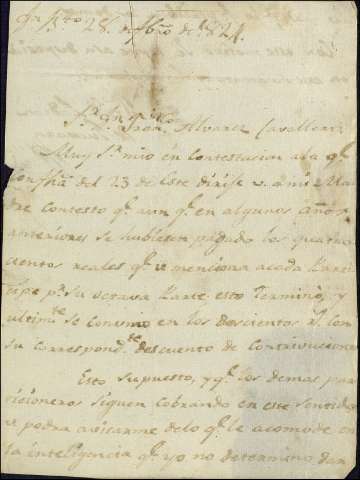 28. de 1821.
Sr. Dn. Alvarez Cavallero
Muy Sr. mio en contestacion ala qe.
con fha del 23 de este dirije v. a mi Ma
dre contesto qe. aun qe. en algunos años
anteriores se hubiesen pagado los quatro
cientos reales qe. v menciona acada Par
tipe pr. su octava Parte, esto Terminó, y
ultimte. se convino en los doscientos rs. con
su correspondte. descuento de contrivuciones
Esto supuesto, y qe. los demas par
ticioneros siguen cobrando en este sentido
v podra avisarme delo qe. le acomode en
la inteligencia qe. yo no determino dar